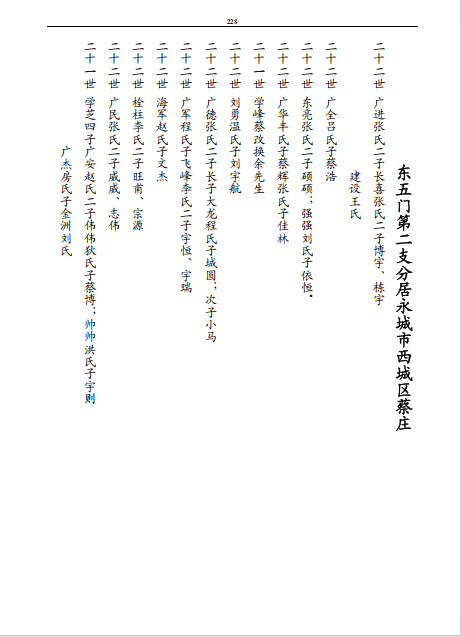 228
东五门第二支分居永城市西城区蔡庄
二十二世 广进张氏二子长喜张氏二子博宇、栋宇
建设王氏
二十二世 广全吕氏子蔡浩
二十二世 东亮张氏二子硕硕；强强刘氏子依恒.
二十二世 广华丰氏子蔡辉张氏子佳林
二十一世 学峰蔡改换余先生
二十二世 刘勇温氏子刘宇航
二十二世 广德张氏二子长子大龙程氏子城圆；次子小马
二十二世 广军程氏子飞峰李氏二子宇恒、宇瑞
二十二世 海军赵氏子文杰
二十二世 栓柱李氏二子旺甫、宗源
二十二世 广民张氏二子威威、志伟
二十一世 学芝四子广安赵氏二子伟伟狄氏子蔡博；帅帅洪氏子宇则
广杰房氏子金洲刘氏